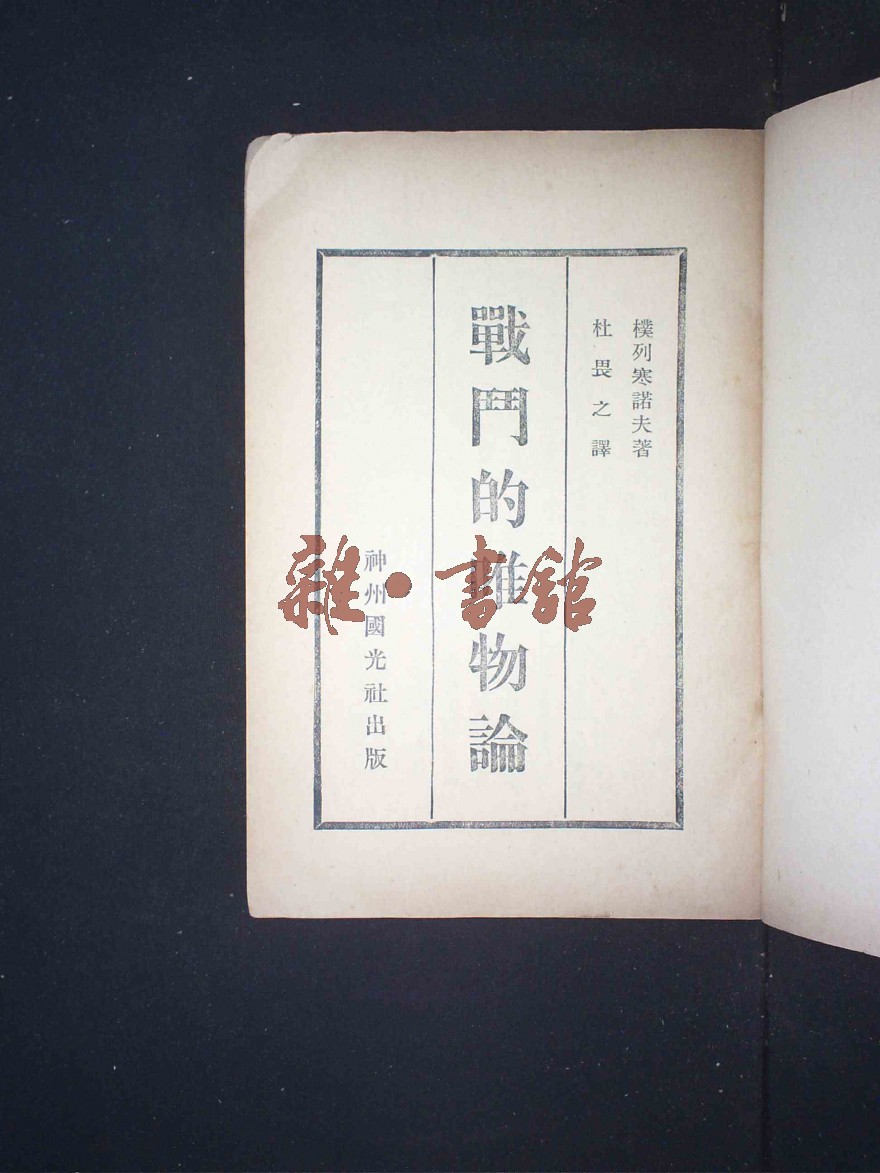 樸列寒諾夫著
杜畏之譯
戰鬥的唯物論
神州國光社出版
雜·書館